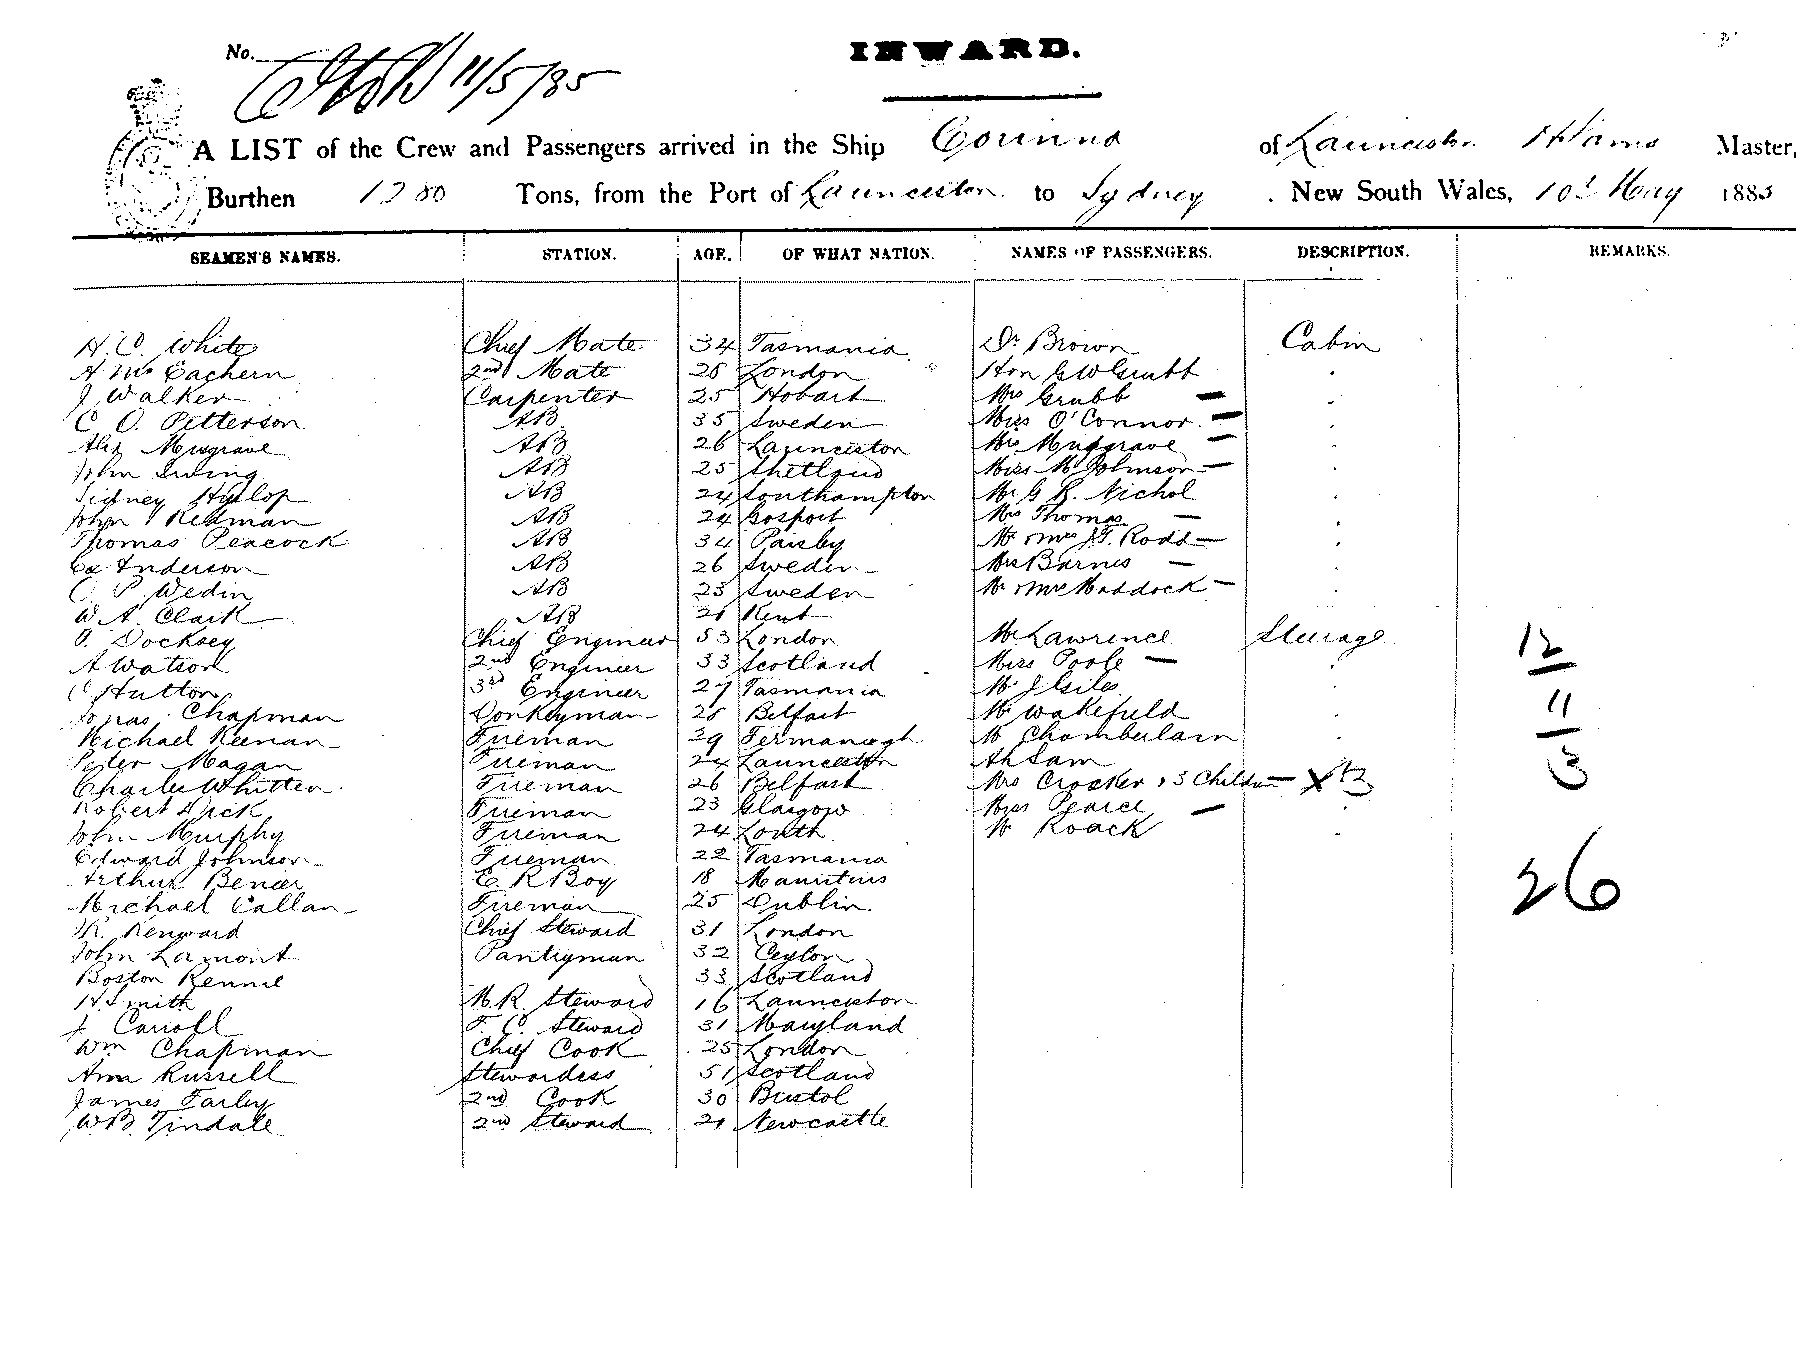 INWARD.
No. 11/5/85
A LIST of the Crew and Passengers arrived in the Ship Corinna of Launceston Adams Master,
Burthen 1280 Tons, from the Port of Launceston to Sydney New South Wales, 10th May 1885
SEAMEN'S NAMES. STATION. AGE. OF WHAT NATION. NAMES OF PASSENGERS. DESCRIPTION. REMARKS.
H. C. White Chief Mate 34 Tasmania Dr Brown Cabin
A McEachern 2nd Mate 28 London Hon G W Grubb
J Walker Carpenter 25 Hobart Mrs Grubb —
C O. Petterson AB 35 Sweden Miss O'Connor —
Alex Musgrave AB 26 Launceston Mrs Musgrave —
John Irving AB 25 Shetland Miss M Johnson —
Sidney Hyslop AB 24 Southampton Mr G R. Nichol
John Redman AB 24 Gosport Mrs Thomas —
Thomas Peacock AB 34 Paisley Mr & Mrs J. T. Rodd —
Anderson AB 26 Sweden Mrs Barnes —
C. P. Wedin AB 23 Sweden Mr & Mrs Maddock —
W A. Clark AB 21 Kent
Docksey Chief Engineer 53 London Mr Lawrence Steerage 12
A Watson 2nd Engineer 33 Scotland Miss Poole —
C Hutton 3rd Engineer 27 Tasmania Mr J Giles 11
Jonas Chapman Donkeyman 28 Belfast Mr Wakefield
Michael Keenan Fireman 29 Fermanagh Mr Chamberlain
Peter Magan Fireman 24 Launceston Ah Sam 3
Charles Whitten Fireman 26 Belfast Mrs Crocker & 3 Children — X
Robert Dick Fireman 23 Glasgow Miss Pearce —
John Murphy Fireman 24 Louth Mr Roack
Edward Johnson Fireman 22 Tasmania
Arthur Benier E. R Boy 18 Mauritius 26
Michael Callan Fireman 25 Dublin
Kenward Chief Steward 31 London
John Lamont Pantryman 32 Ceylon
Boston Rennie 33 Scotland
H Smith M. R. Steward 16 Launceston
J. Carroll F. C. Steward 31 Maryland
Wm Chapman Chief Cook 25 London
Ann Russell Stewardess 51 Scotland
James Farley 2nd Cook 30 Bristol
W B. Tindale 2nd Steward 21 Newcastle